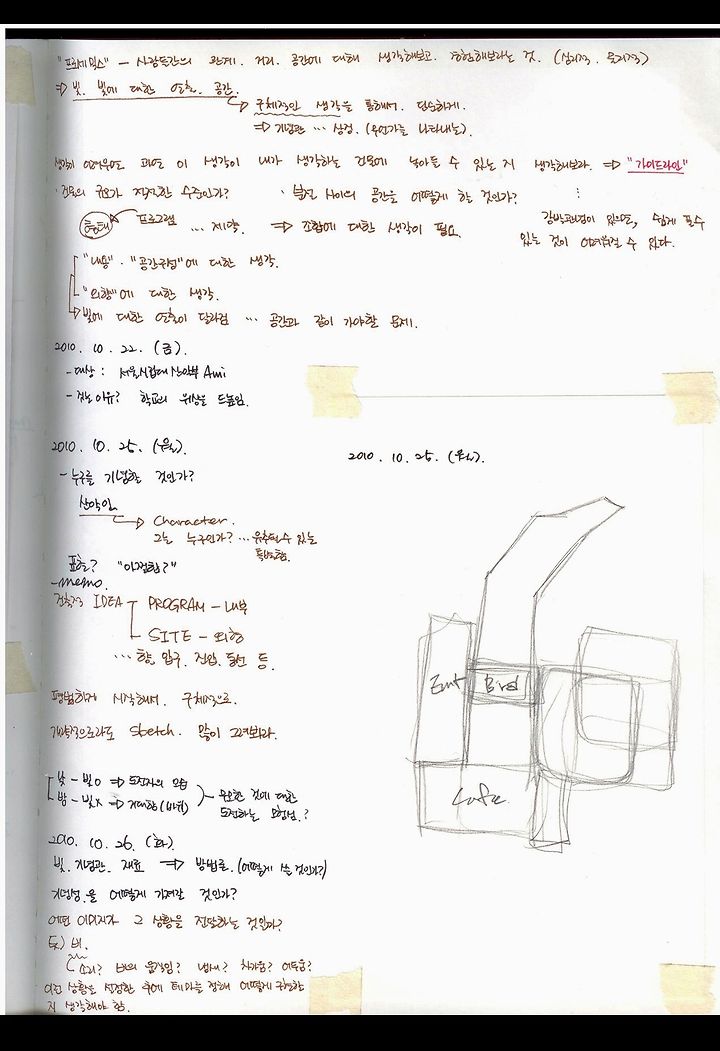 "프록세믹스" – 사람들간의 관계. 거리. 공간에 대해 생각해보고. 경험해보라는 것. (심리적. 물리적)
⇒ 빛. 빛에 대한 연출. 공간.
구체적인 생각을 통해서. 단순하게.
⇒ 기념관 … 상징. (무언가를 나타내는).
생각이 이 생각이 내가 생각하는 건물에 녹아들 수 있는 지 생각해보라. ⇒ "가이드라인"
· 건물의 규모가 적절한 수준인가?
· 사이의 공간을 어떻게 할 것인가?
⋮
형태
프로그램 … 제약. ⇒ 조합에 대한 생각이 필요.
강박관념이 있으면, 쉽게 풀 수
있는 것이 어려워질 수 있다.
"내용". "공간구성"에 대한 생각.
"외형"에 대한 생각.
빛에 대한 연출이 달라짐 … 공간과 같이 가야할 문제.
2010. 10. 22. (금).
- 대상 : 서울시립대 산악부 Ami
- 짓는 이유? 학교의 위상을 드높임.
2010. 10. 25. (월).
2010. 10. 25. (월).
- 누구를 기념할 것인가?
산악인.
Character.
그는 누구인가? … 유추될 수 있는
특별함.
표출? "이적합?"
- memo.
건축적 IDEA
PROGRAM – 내부
SITE – 외형
… 향. 입구. 진입. 동선 등.
Ent
Bird
Cafe
평범하게 시작해서. 구체적으로.
개략적으로라도 sketch. 많이 그려보라.
낮 – 빛o ⇒ 도전자의 모습
밤 – 빛x ⇒ 거대함
것에 대한
도전하는 모험심.?
2010. 10. 26. (화)
빛. 기념관. 재료 ⇒ 방법론. (어떻게 쓸 것인가?)
기념성.을 어떻게 가져갈 것인가?
어떤 이미지가 그 상황을 전달하는 것인가?
ex) 비.
소리? 비의 움직임? 냄새? 차가움? 어두움?
어떤 상황을 설정한 후에 테마를 정해 어떻게 구현할
지 생각해야 함.